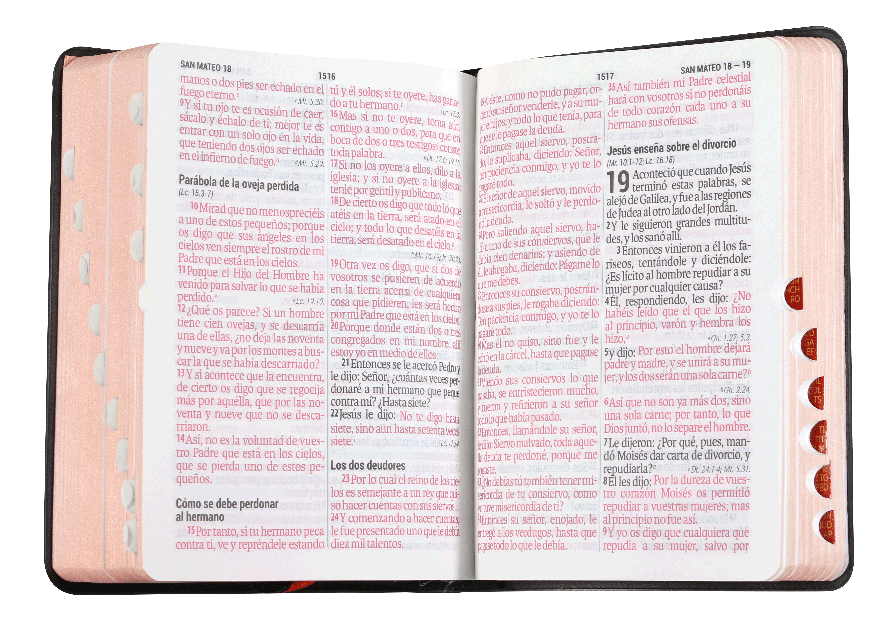 SAN MATEO 18
1516
manos o dos pies ser echado en el
fuego eterno.
Mt. 5.30.
9Y si tu ojo te es ocasión de caer,
sácalo y échalo de ti; mejor te es
entrar con un solo ojo en la vida,
que teniendo dos ojos ser echado
en el infierno de fuego.
Mt. 5.29.
Parábola de la oveja perdida
(Lc. 15.3-7)
10Mirad que no menospreciéis
a uno de estos pequeños; porque
os digo que sus ángeles en los
cielos ven siempre el rostro de mi
Padre que está en los cielos.
11Porque el Hijo del Hombre ha
venido para salvar lo que se había
perdido.
Lc. 19.10.
12¿Qué os parece? Si un hombre
tiene cien ovejas, y se descarría
una de ellas, ¿no deja las noventa
y nueve y va por los montes a bus-
car la que se había descarriado?
13Y si acontece que la encuentra,
de cierto os digo que se regocija
más por aquélla, que por las no-
venta y nueve que no se desca-
rriaron.
14Así, no es la voluntad de vues-
tro Padre que está en los cielos,
que se pierda uno de estos pe-
queños.
Cómo se debe perdonar
al hermano
15Por tanto, si tu hermano peca
contra ti, ve y repréndele estando
tú y él solos; si te oyere, has gana-
do a tu hermano.
16Mas si no te oyere, toma aún
contigo a uno o dos, para que en
boca de dos o tres testigos conste
toda palabra.
17Si no los oyere a ellos, dilo a la
iglesia; y si no oyere a la iglesia,
tenle por gentil y publicano.
18De cierto os digo que todo lo que
atéis en la tierra, será atado en el
cielo; y todo lo que desatéis en la
tierra, será desatado en el cielo.
19Otra vez os digo, que si dos de
vosotros se pusieren de acuerdo
en la tierra acerca de cualquiera
cosa que pidieren, les será hecho
por mi Padre que está en los cielos.
20Porque donde están dos o tres
congregados en mi nombre, allí
estoy yo en medio de ellos.
21Entonces se le acercó Pedro y
le dijo: Señor, ¿cuántas veces per-
donaré a mi hermano que peque
contra mí? ¿Hasta siete?
22Jesús le dijo: No te digo hasta
siete, sino aun hasta setenta veces
siete.
Los dos deudores
23Por lo cual el reino de los cie-
los es semejante a un rey que qui-
so hacer cuentas con sus siervos.
24Y comenzando a hacer cuentas,
le fue presentado uno que le debía
diez mil talentos.
1517
SAN MATEO 18 – 19
A éste, como no pudo pagar, or-
denó su señor venderle, y a su mu-
jer e hijos, y todo lo que tenía, para
que se le pagase la deuda.
Entonces aquel siervo, postra-
do, le suplicaba, diciendo: Señor,
ten paciencia conmigo, y yo te lo
pagaré todo.
El señor de aquel siervo, movido
a misericordia, le soltó y le perdo-
nó la deuda.
Pero saliendo aquel siervo, ha-
lló a uno de sus consiervos, que le
debía cien denarios; y asiendo de
él, le ahogaba, diciendo: Págame lo
que me debes.
Entonces su consiervo, postrán-
dose a sus pies, le rogaba diciendo:
Ten paciencia conmigo, y yo te lo
pagaré todo.
Mas él no quiso, sino fue y le
echó en la cárcel, hasta que pagase
la deuda.
Viendo sus consiervos lo que
pasaba, se entristecieron mucho,
y fueron y refirieron a su señor
todo lo que había pasado.
Entonces, llamándole su señor,
le dijo: Siervo malvado, toda aque-
lla deuda te perdoné, porque me
rogaste.
¿No debías tú también tener mi-
sericordia de tu consiervo, como
yo tuve misericordia de ti?
Entonces su señor, enojado, le
entregó a los verdugos, hasta que
pagase todo lo que le debía.
35Así también mi Padre celestial
hará con vosotros si no perdonáis
de todo corazón cada uno a su
hermano sus ofensas.
Jesús enseña sobre el divorcio
(Mr. 10.1-12; Lc. 16.18)
19 Aconteció que cuando Jesús
terminó estas palabras, se
alejó de Galilea, y fue a las regiones
de Judea al otro lado del Jordán.
2Y le siguieron grandes multitu-
des, y los sanó allí.
3Entonces vinieron a él los fa-
riseos, tentándole y diciéndole:
¿Es lícito al hombre repudiar a su
mujer por cualquier causa?
4Él, respondiendo, les dijo: ¿No
habéis leído que el que los hizo
al principio, varón y hembra los
hizo,
Gn. 1.27; 5.2.
5y dijo: Por esto el hombre dejará
padre y madre, y se unirá a su mu-
jer, y los dos serán una sola carne?
Gn. 2.24.
6Así que no son ya más dos, sino
una sola carne; por tanto, lo que
Dios juntó, no lo separe el hombre.
7Le dijeron: ¿Por qué, pues, man-
dó Moisés dar carta de divorcio, y
repudiarla?
Dt. 24.1-4; Mt. 5.31.
8Él les dijo: Por la dureza de vues-
tro corazón Moisés os permitió
repudiar a vuestras mujeres; mas
al principio no fue así.
9Y yo os digo que cualquiera que
repudia a su mujer, salvo por